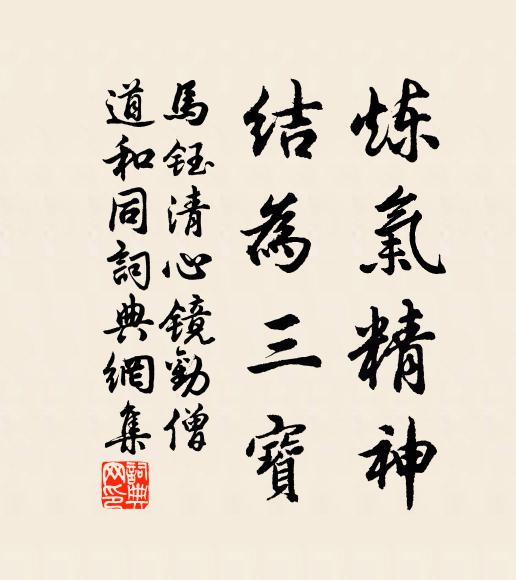 炼氣精神
結為三寶
馬鈺清心鏡勸僧
道和同詞典網集
詞典网印